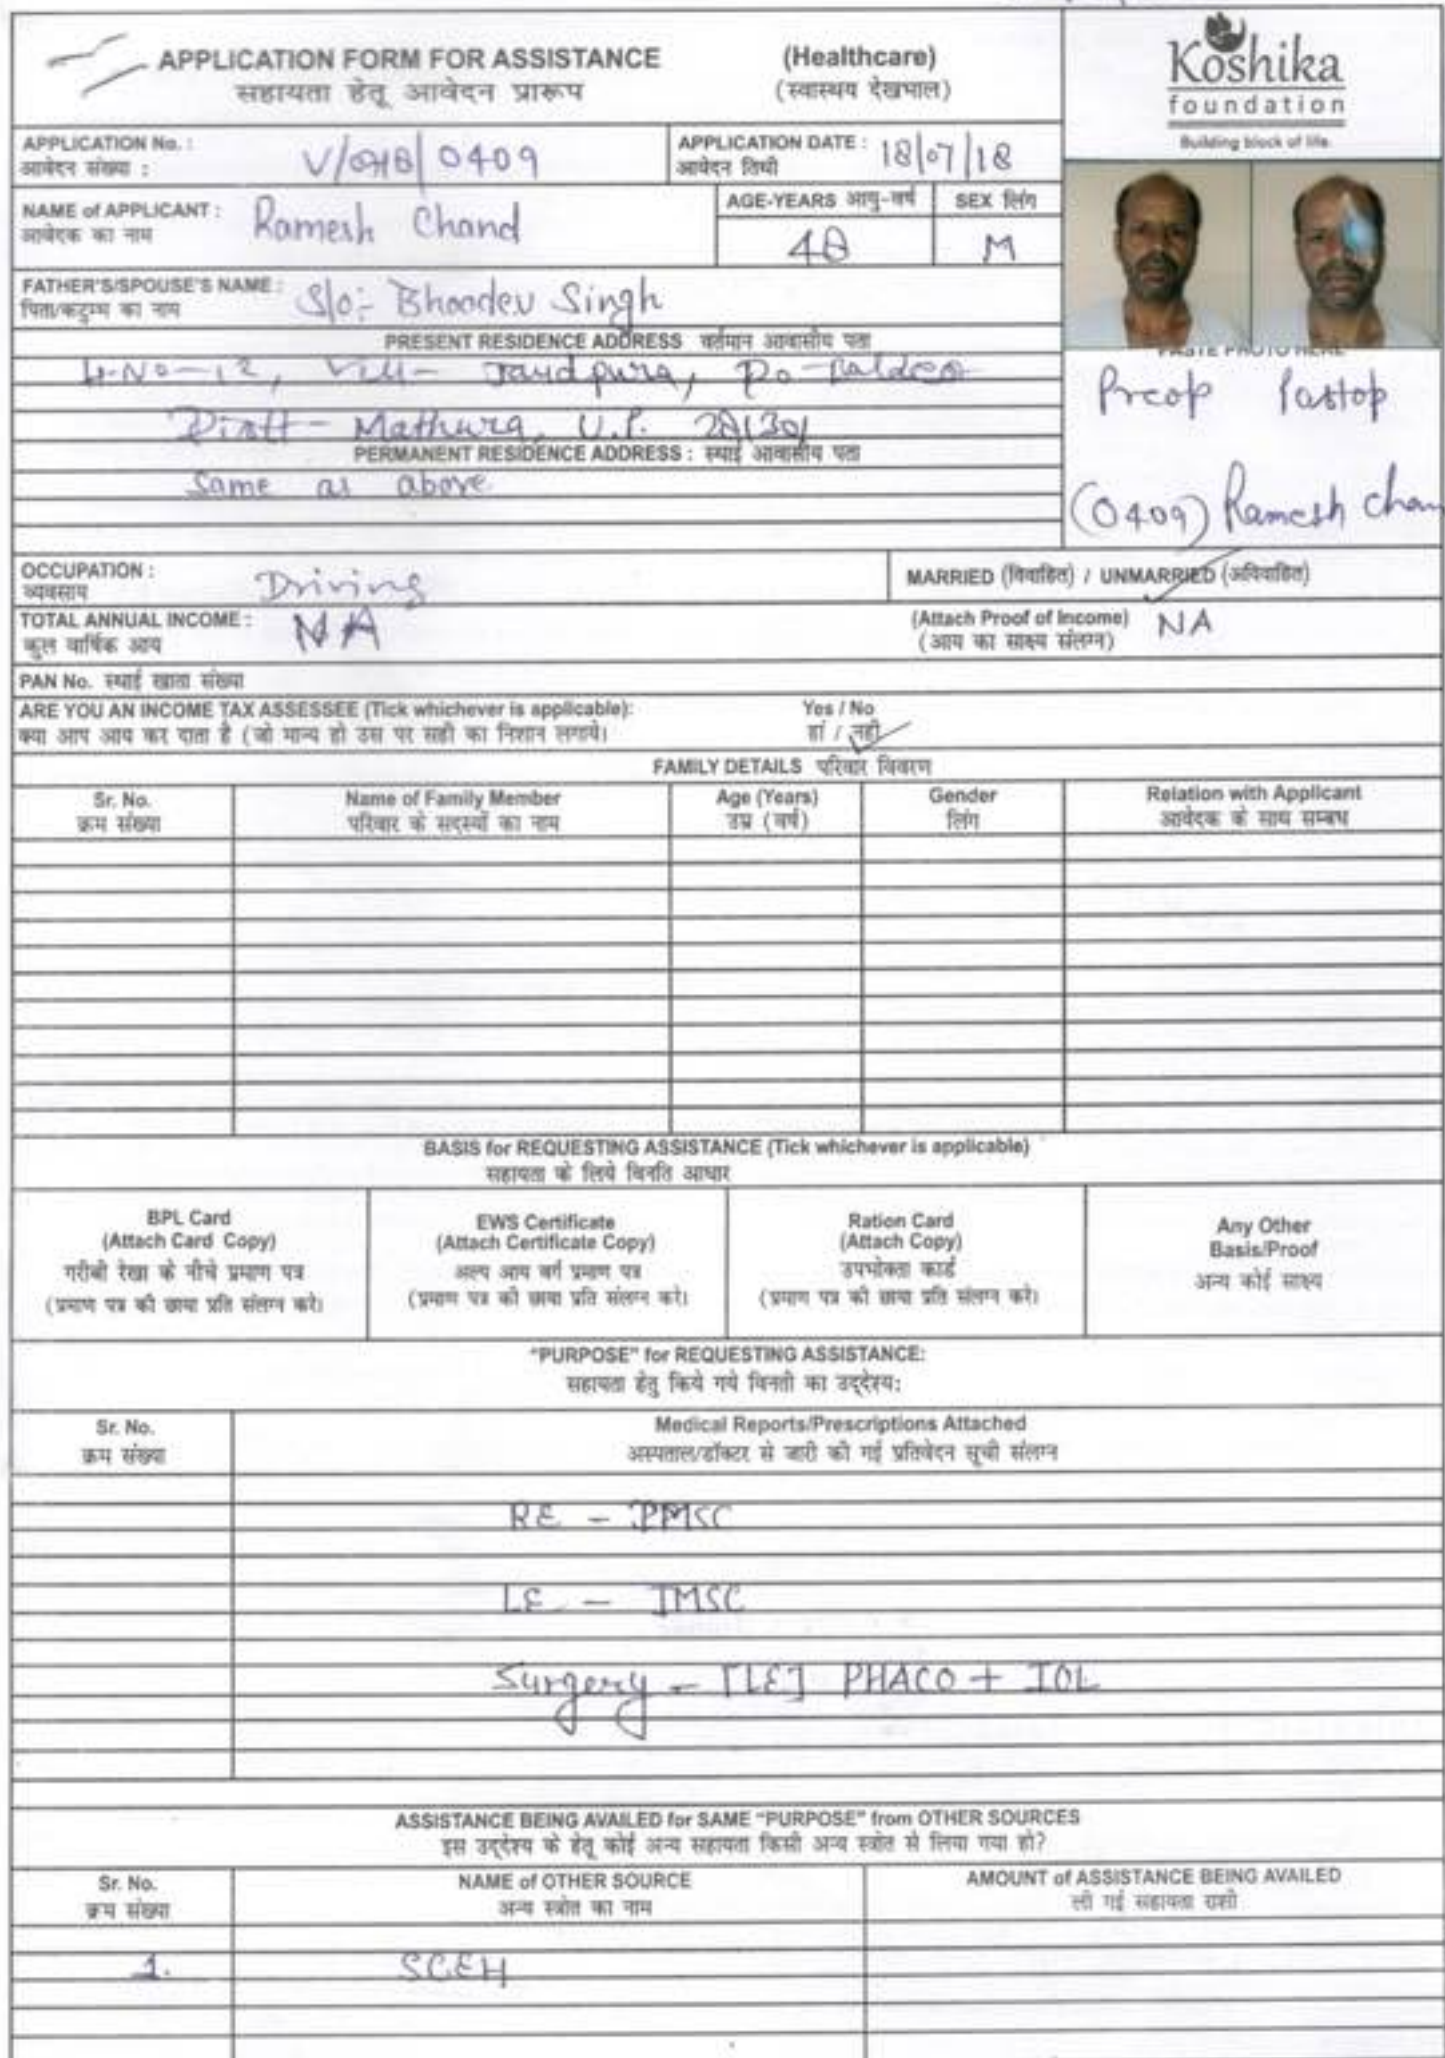 APPLICATION FORM FOR ASSISTANCE (Healthcare)
सहायता हेतू आवेदन प्रारूप (स्वास्थय देखभाल)
Koshika
foundation
Building block of life.
APPLICATION No. : V/ /0409
आवेदन संख्या :
APPLICATION DATE : 18/07/18
आवेदन तिथी
NAME of APPLICANT : Ramesh Chand
आवेदक का नाम
AGE-YEARS आयु-वर्ष SEX लिंग
48 M
FATHER'S/SPOUSE'S NAME : S/o:- Bhoodev Singh
पिता/कटुम्ब का नाम
PRESENT RESIDENCE ADDRESS वर्तमान आवासीय पता
H-No-12, Vill- Po-Baldeo
Distt- Mathura, U.P. 281301
PERMANENT RESIDENCE ADDRESS : स्थाई आवासीय पता
Same as above
PASTE PHOTO HERE
Preop Postop
(0409) Ramesh Chan
OCCUPATION : Driving
व्यवसाय
MARRIED (विवाहित) / UNMARRIED (अविवाहित)
TOTAL ANNUAL INCOME : NA
कुल वार्षिक आय
(Attach Proof of Income) NA
(आय का साक्ष्य संलग्न)
PAN No. स्थाई खाता संख्या
ARE YOU AN INCOME TAX ASSESSEE (Tick whichever is applicable): Yes / No
क्या आप आय कर दाता है (जो मान्य हो उस पर सही का निशान लगाये। हां / नही
FAMILY DETAILS परिवार विवरण
Sr. No. Name of Family Member Age (Years) Gender Relation with Applicant
क्रम संख्या परिवार के सदस्यों का नाम उम्र (वर्ष) लिंग आवेदक के साथ सम्बध
BASIS for REQUESTING ASSISTANCE (Tick whichever is applicable)
सहायता के लिये विनति आधार
BPL Card
(Attach Card Copy)
गरीबी रेखा के नीचे प्रमाण पत्र
(प्रमाण पत्र की छाया प्रति संलग्न करे।
EWS Certificate
(Attach Certificate Copy)
अल्प आय वर्ग प्रमाण पत्र
(प्रमाण पत्र की छाया प्रति संलग्न करे।
Ration Card
(Attach Copy)
उपभोक्ता कार्ड
(प्रमाण पत्र की छाया प्रति संलग्न करे।
Any Other
Basis/Proof
अन्य कोई साक्ष्य
"PURPOSE" for REQUESTING ASSISTANCE:
सहायता हेतु किये गये विनती का उद्देश्य:
Sr. No. Medical Reports/Prescriptions Attached
क्रम संख्या अस्पताल/डॉक्टर से जारी की गई प्रतिवेदन सूची संलग्न
RE - PMSC
LE - IMSC
Surgery - [LE] PHACO + IOL
ASSISTANCE BEING AVAILED for SAME "PURPOSE" from OTHER SOURCES
इस उद्देश्य के हेतू कोई अन्य सहायता किसी अन्य स्त्रोत से लिया गया हो?
Sr. No. NAME of OTHER SOURCE AMOUNT of ASSISTANCE BEING AVAILED
क्रम संख्या अन्य स्त्रोत का नाम ली गई सहायता राशी
1. SCEH